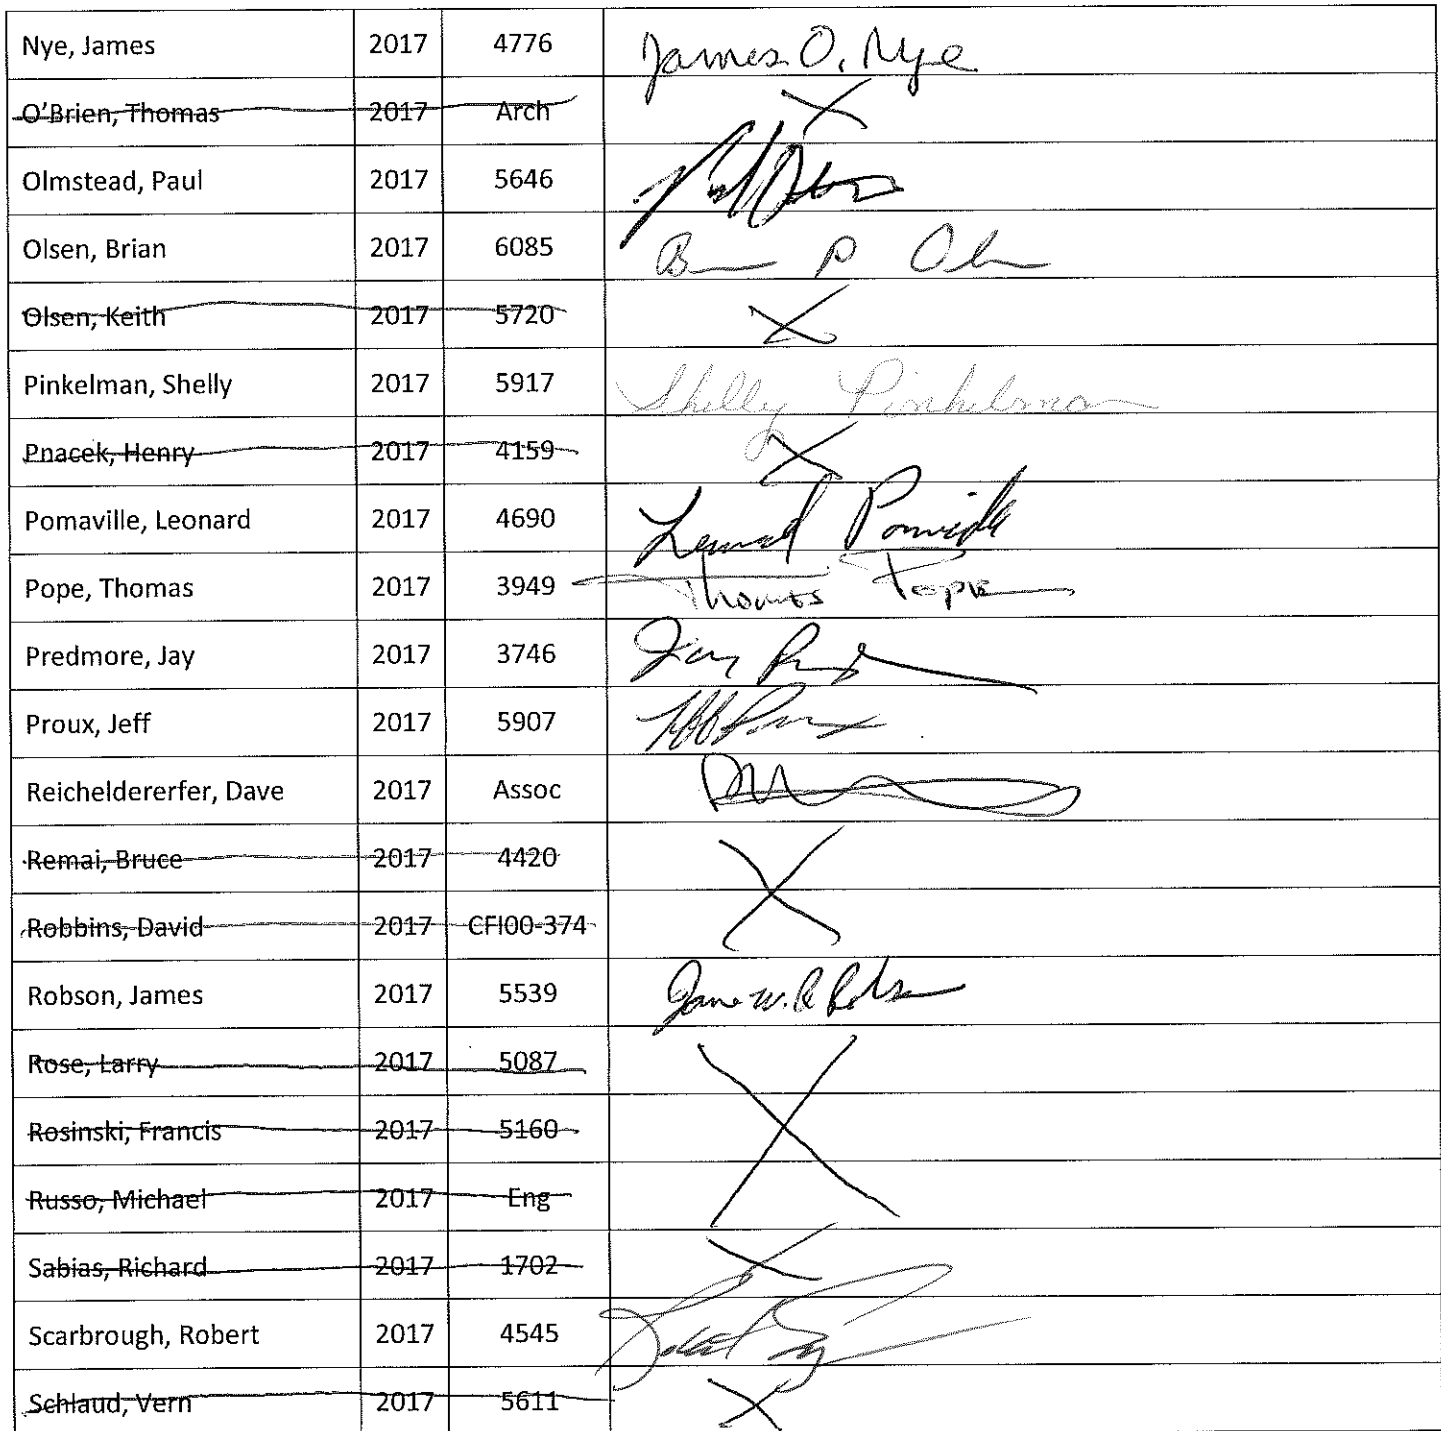 Nye, James 2017 4776 James O. Nye
O'Brien, Thomas 2017 Arch X
Olmstead, Paul 2017 5646
Olsen, Brian 2017 6085 B P Olsen
Olsen, Keith 2017 5720 X
Pinkelman, Shelly 2017 5917 Shelly Pinkelman
Pnacek, Henry 2017 4159 X
Pomaville, Leonard 2017 4690 Leonard Pomaville
Pope, Thomas 2017 3949 Thomas Pope
Predmore, Jay 2017 3746 Jay
Proux, Jeff 2017 5907 Jeff Proux
Reicheldererfer, Dave 2017 Assoc
Remai, Bruce 2017 4420 X
Robbins, David 2017 CFI00-374
Robson, James 2017 5539 James W. R Robson
Rose, Larry 2017 5087 X
Rosinski, Francis 2017 5160
Russo, Michael 2017 Eng
Sabias, Richard 2017 1702 X
Scarbrough, Robert 2017 4545
Schlaud, Vern 2017 5611 X